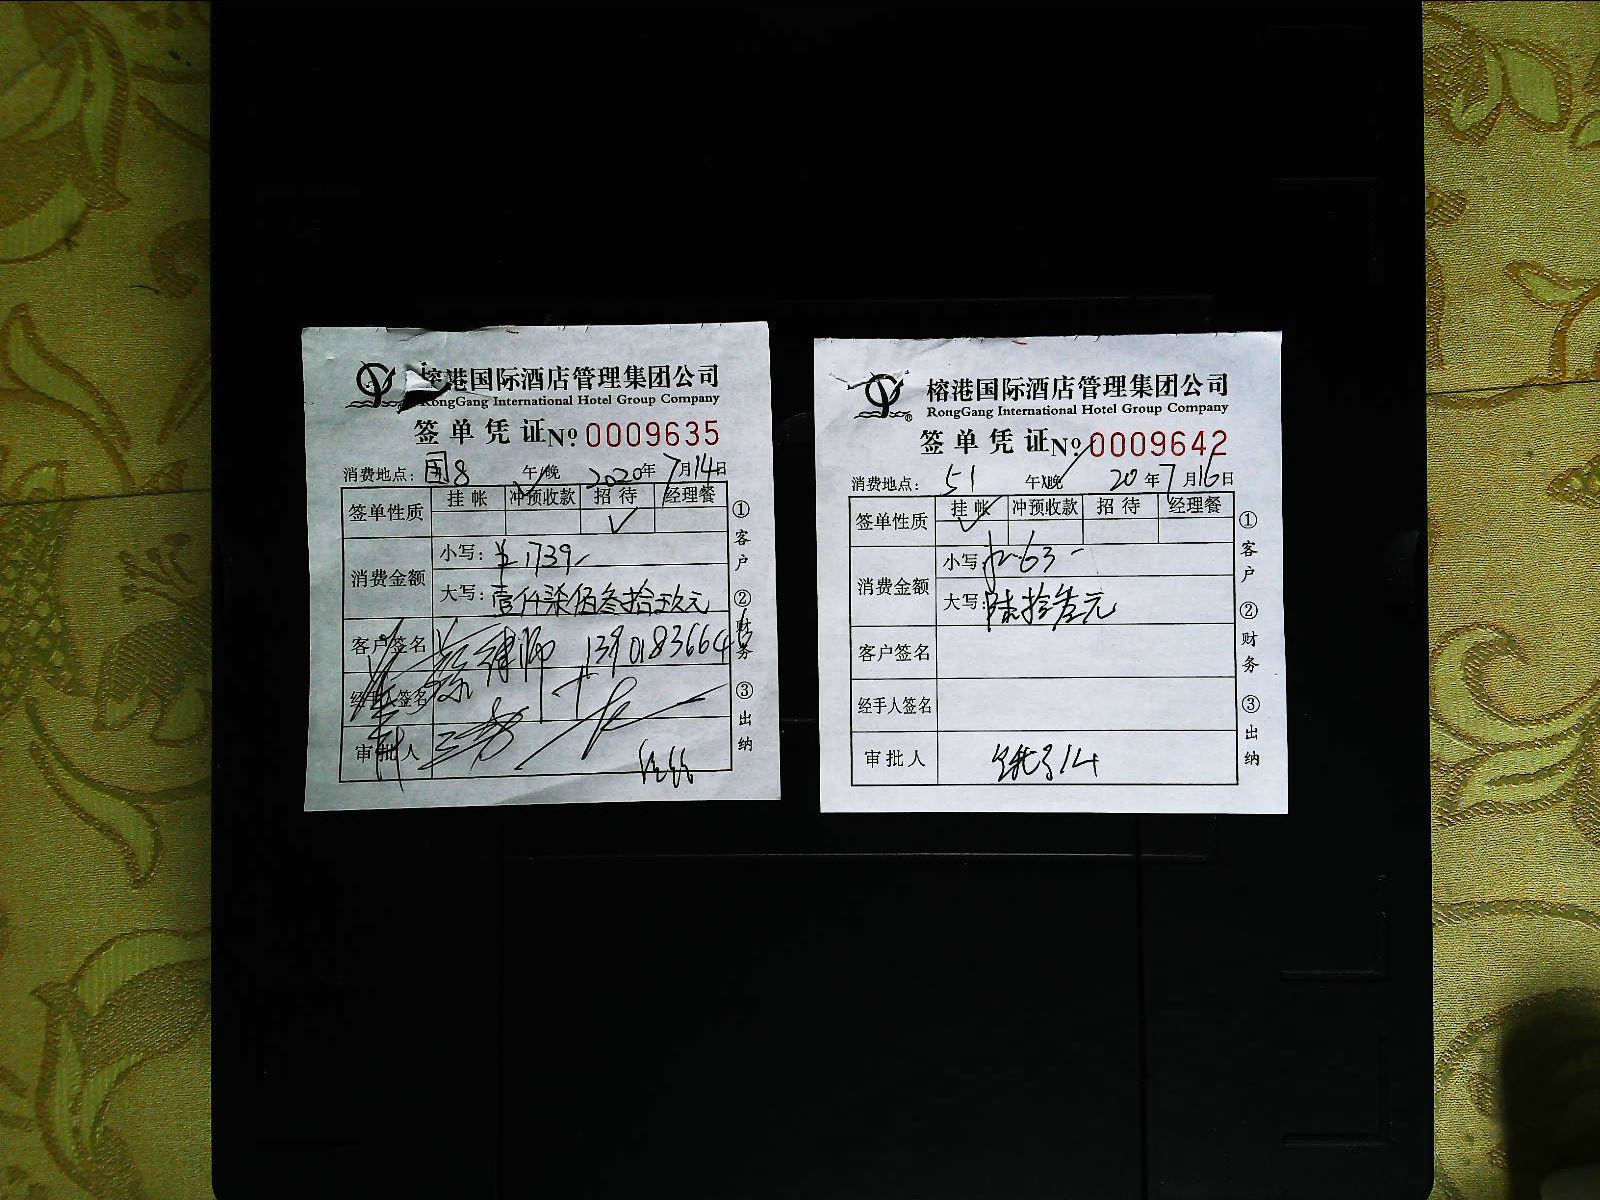 榕港国际酒店管理集团公司
RongGang International Hotel Group Company
签单凭证 No 0009635
消费地点: 国8 午/晚 2020年7月14日
签单性质 挂帐 冲预收款 招待 经理餐
✓
消费金额 小写: ¥1739-
大写: 壹仟柒佰叁拾玖元
客户签名 律师
经手人签名
审批人
①客户 ②财务 ③出纳
榕港国际酒店管理集团公司
RongGang International Hotel Group Company
签单凭证 No 0009642
消费地点: 51 午/晚 20年7月16日
签单性质 挂帐 冲预收款 招待 经理餐
✓
消费金额 小写: 63-
大写: 陆拾叁元
客户签名
经手人签名
审批人
①客户 ②财务 ③出纳